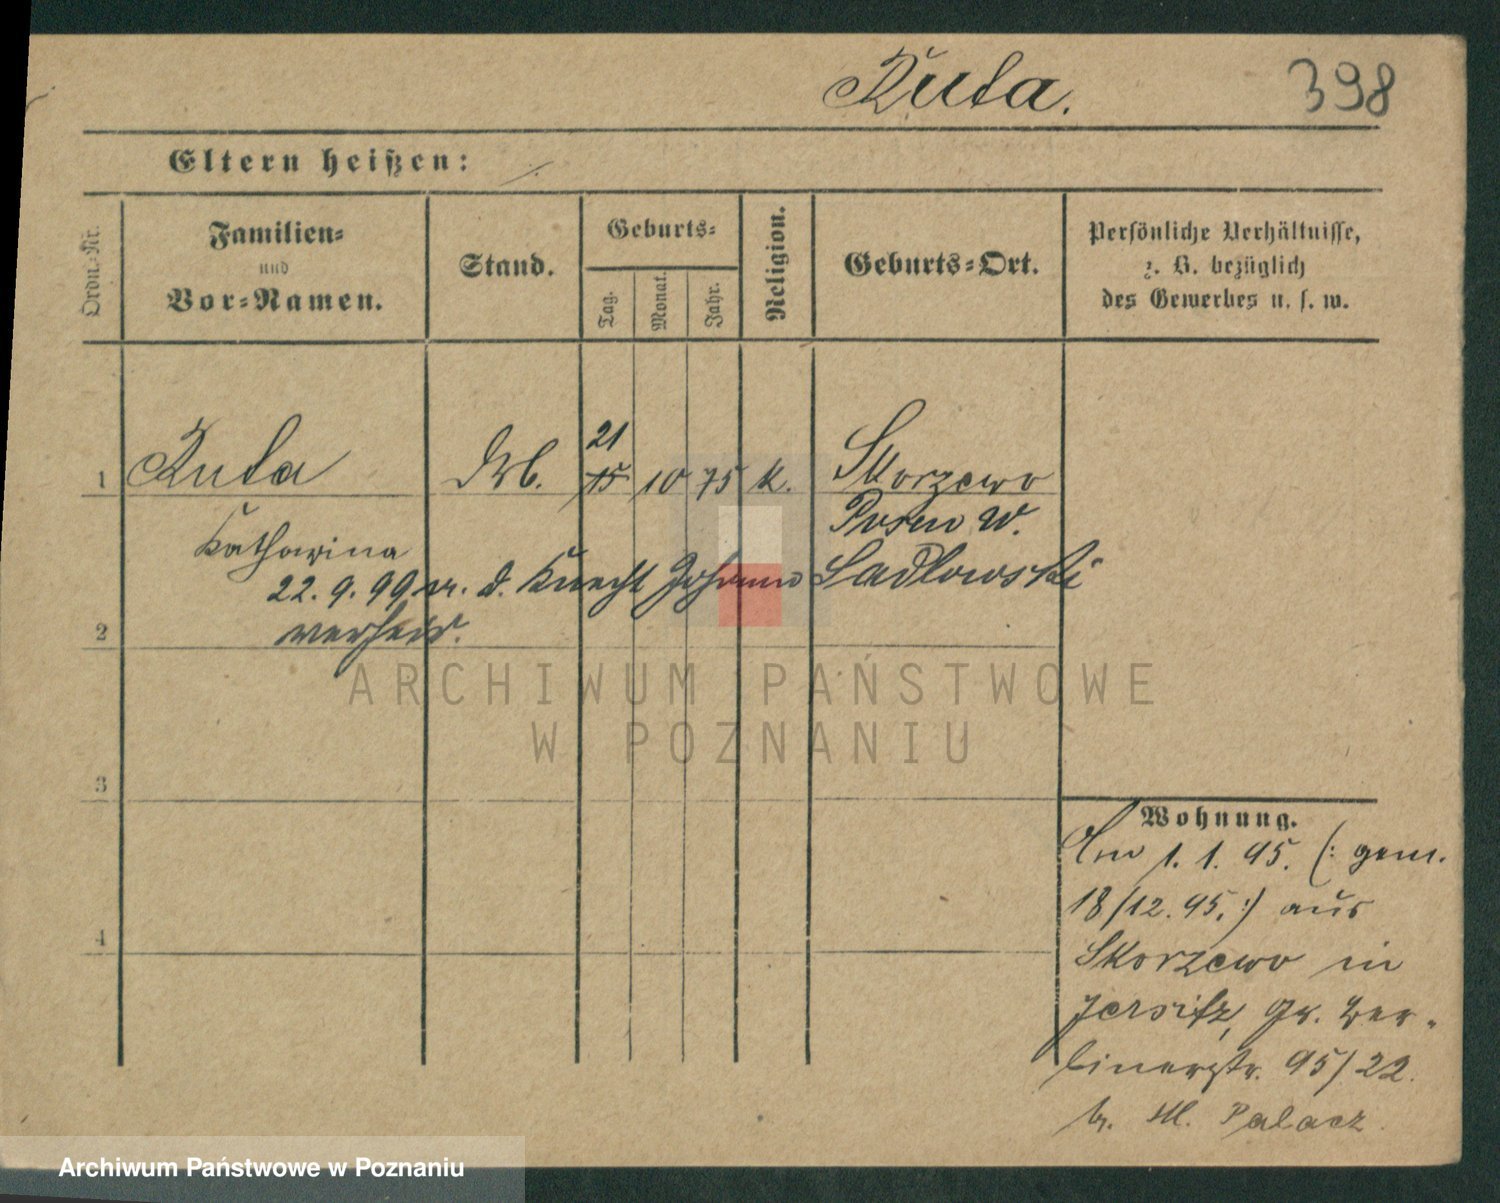 Ruta.
398
Eltern heißen:
Ordn.-Nr.
Familien-
und
Vor-Namen.
Stand.
Geburts-
Tag.
Monat.
Jahr.
Religion.
Geburts-Ort.
Persönliche Verhältnisse,
z. B. bezüglich
des Gewerbes u. s. w.
21
1 Ruta 15 10 75 k. Skorzewo
Posen W.
Katharina
22. 9. 99 m. d. Knecht Johann Sadlowski
2 verheir.
ARCHIWUM PAŃSTWOWE
W POZNANIU
3
Wohnung.
Am 1. 1. 95. (: gem.
18/12. 95. :) aus
4
Skorzewo in
Jersitz, Gr. Ber-
linerstr. 95/22.
b. Palacz.
Archiwum Państwowe w Poznaniu